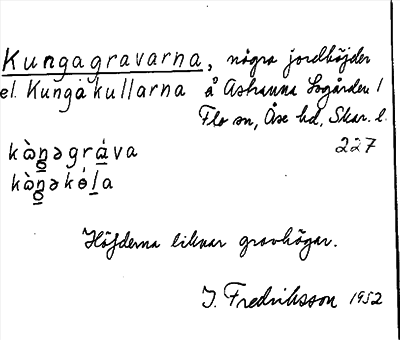 Kungagravarna, några jordhöjder
el. Kungakullarna å Ashanna Sogården 1
Flo sn, Åse hd, Skar. l.
227
kὼŋəgrá̱va
kὼŋəkɵ́ḻa
Höjderna liknar gravhögar.
J. Fredriksson 1952